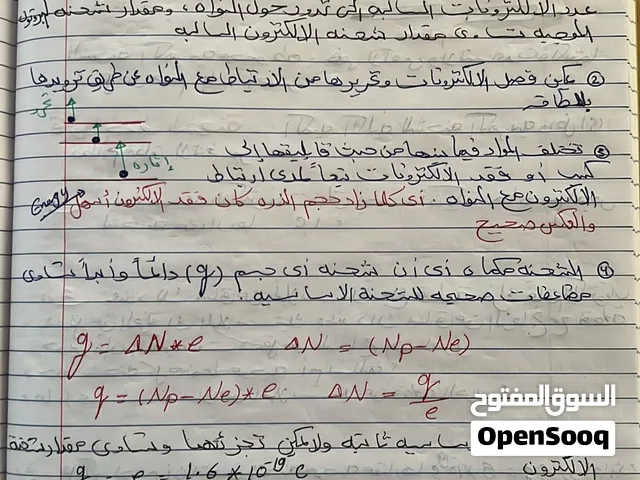 عدد الالكترونات السالبه التى تدور حول النواه، ومقدار شحنه البروتون
الموجبه تساوى مقدار شحنه الالكترون السالبه
② يمكن فصل الالكترونات وتحريرها من الارتباط مع النواه عن طريق تزويدها
بالطاقه
تحرر
③ تختلف المواد فيما بينها من حيث قابليتها إلى
إثاره
كسب أو فقد الالكترونات تبعاً لمدى ارتباط
Energy
الالكترون مع النواه. أى كلما زاد حجم الذره كان فقد الالكترون أسهل
والعكس صحيح
④ الشحنه مكماه أى أن شحنه أى جسم (q) دائماً وأبداً تساوى
مضاعفات صحيحه للشحنة الاساسيه.
q = ΔN * e ΔN = (Np - Ne)
q = (Np - Ne) * e ΔN = q/e
السوق المفتوح
OpenSooq
ساسيه ثابته ولا يمكن تجزئتها وتساوى مقدار شحنة
الالكترون q = e = 1.6 * 10⁻¹⁹ c